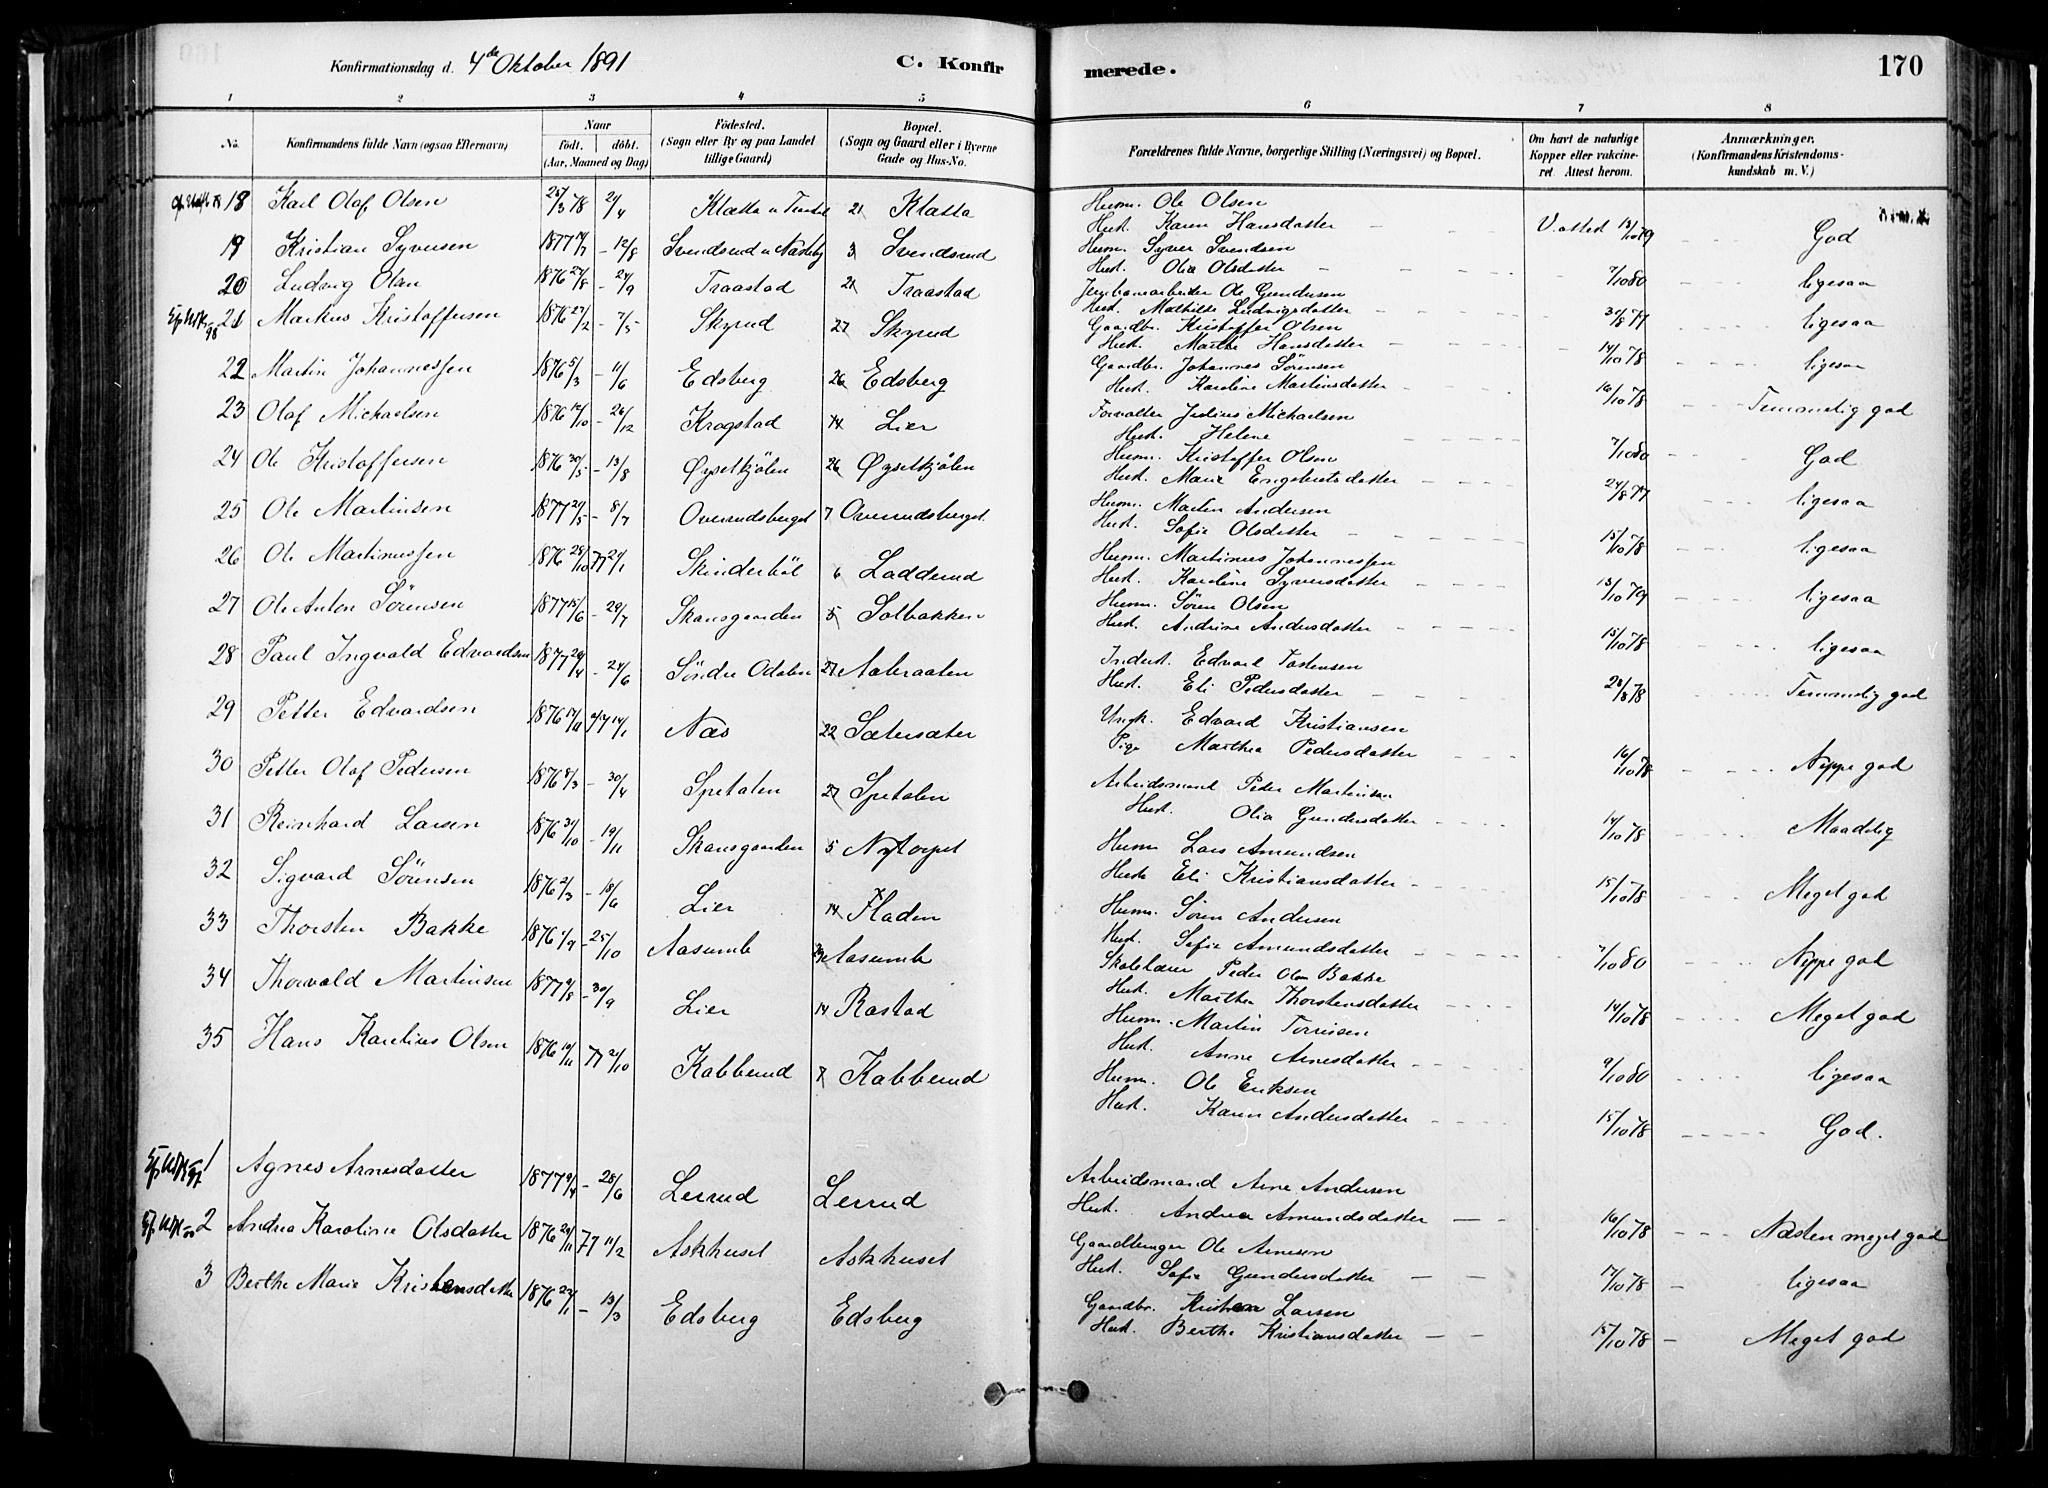 Konfirmationsdag d. 4de Oktober 1891
C. Konfirmerede.
170
1 2 3 4 5 6 7 8
No.
Konfirmandens fulde Navn (ogsaa Efternavn)
Naar født. døbt. (Aar, Maaned og Dag)
Fødested. (Sogn eller By og paa Landet tillige Gaard)
Bopæl. (Sogn og Gaard eller i Byerne Gade og Hus-No.
Forældrenes fulde Navne, borgerlige Stilling (Næringsvei) og Bopæl.
Om havt de naturlige Kopper eller vakcineret. Attest herom.
Anmærkninger, (Konfirmandens Kristendomskundskab m. V.)
18 Karl Olaf Olsen 25/3 78 21/4 Klætta 21 Klætta Husm. Ole Olsen
Hust. Karen Hansdatter V. attest 13/10 79 God
19 Kristian Syversen 1877 – 12/8 Svendsrud u Næsteby 3 Svendsrud Husm. Syver Svendsen
Hust. Olia Olsdatter 7/10 80 ligesaa
20 Ludvig Olsen 1876 – 24/9 Traastad 21 Traastad Jernbanearbeider Ole Gundersen
Hust. Mathilde Ludvigsdatter 31/8 77 ligesaa
21 Markus Kristoffersen 1876 27/2 – 7/5 Skyrud 27 Skyrud Gaardbr. Kristoffer Olsen
Hust. Marthe Hansdatter 14/10 78 ligesaa
22 Martin Johannessen 1876 5/3 – 11/6 Edsberg 26 Edsberg Gaardbr. Johannes Sørensen
Hust. Karoline Martinsdatter 16/10 78 Temmelig god
23 Olaf Michaelsen 1876 12/10 – 26/12 Krogstad 14 Lier Forvalter Julius Michaelsen
Hust. Helene 7/10 80 God
24 Ole Kristoffersen 1876 30/5 – 13/8 Øysetkjølen 26 Øysetkjølen Husm. Kristoffer Olsen
Hust. Marie Engebretsdatter 24/8 77 ligesaa
25 Ole Martinsen 1877 21/5 – 8/7 Overudsberget 7 Overudsberget Husm. Martin Andersen
Hust. Sofie Olsdatter 15/10 78 ligesaa
26 Ole Martinussen 1876 28/10 77 21/1 Skinderbøl 6 Ladderud Husm. Martinus Johannessen
Hust. Karoline Syversdatter 13/10 79 ligesaa
27 Ole Anton Sørensen 1877 15/6 – 29/7 Skansgaarden 5 Solbakken Husm. Søren Olsen
Hust. Andrine Andersdatter 15/10 78 ligesaa
28 Paul Ingvald Edvardsen 1877 – 24/6 Søndre Odalen 27 Aabraaten Inderst. Edvard Tostensen
Hust. Eli Pedersdatter 28/8 78 Temmelig god
29 Petter Edvardsen 1876 77 14/1 Næs 22 Sætersæter Ungk. Edvard Kristiansen
Pige Marthea Pedersdatter 16/10 78 Neppe god
30 Petter Olaf Pedersen 1876 8/3 – 30/4 Spetalen 27 Spetalen Arbeidsmand Peder Martinsen
Hust. Olia Gundersdatter 14/10 78 Maadelig
31 Reinhard Larsen 1876 31/10 – 19/11 Skansgaarden 5 Nytorpet Husm Lars Amundsen
Hust Eli Kristiansdatter 15/10 78 Meget god
32 Sigvard Sørensen 1876 2/3 – 18/6 Lier 14 Fladen Husm. Søren Andersen
Hust. Sofie Amundsdatter 7/10 80 Neppe god
33 Thorsten Bakke 1876 1/9 – 25/10 Aasumb Aasumb Skolelærer Peder Olsen Bakke
Hust. Marthea Thorstensdatter 14/10 78 Meget god
34 Thorvald Martinsen 1877 9/8 – 30/9 Lier 14 Rastad Husm. Martin Torrisen
Hust. Anne Arnesdatter 9/10 80 ligesaa
35 Hans Karelius Olsen 1876 19/11 77 21/10 Kabberud 7 Kabberud Husm. Ole Eriksen
Hust. Karen Andersdatter 15/10 78 God.
1 Agnes Arnesdatter 1877 9/4 – 28/6 Lerrud Lerrud Arbeidsmand Arne Andersen
Hust. Andrea Amundsdatter 16/10 78 Næsten meget god
2 Andrea Karoline Olsdatter 1876 29/11 77 11/2 Askhuset Askhuset Gaardbruger Ole Arnesen
Hust. Sofie Gundersdatter 17/10 78 ligesaa
3 Berthe Marie Kristensdatter 1876 23/1 – 13/3 Edsberg Edsberg Gaardbr. Kristen Larsen
Hust. Berthe Kristiansdatter 15/10 78 Meget god